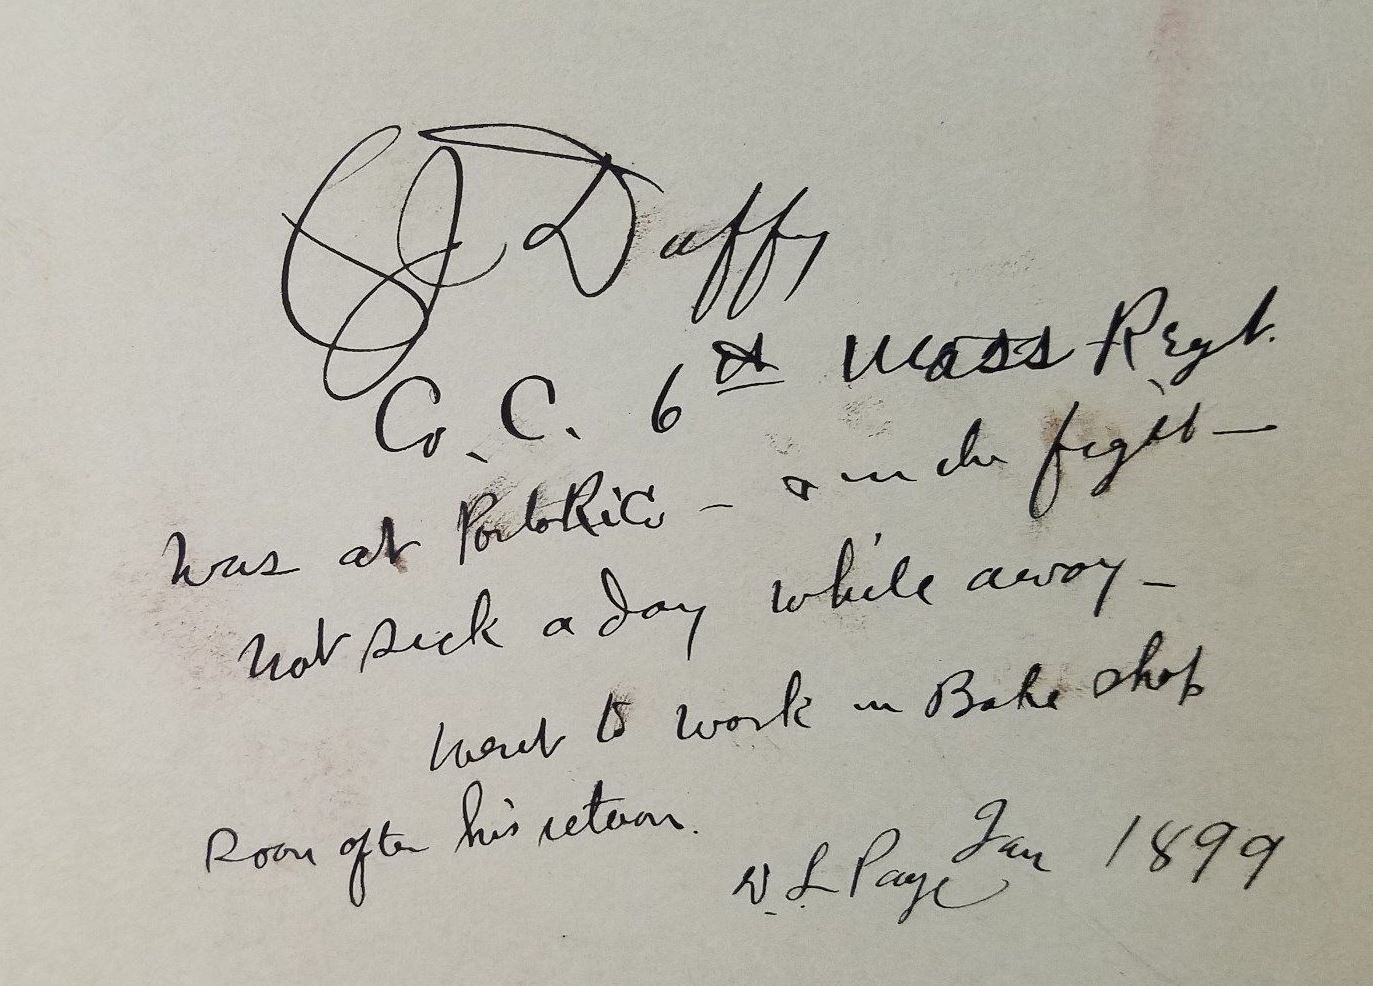 Duffy
Co. C. 6th Mass Regt.
was at Porto Rico – & in the fight –
not sick a day while away –
went to work in Bake shop
soon after his return.
D. L. Page Jan 1899